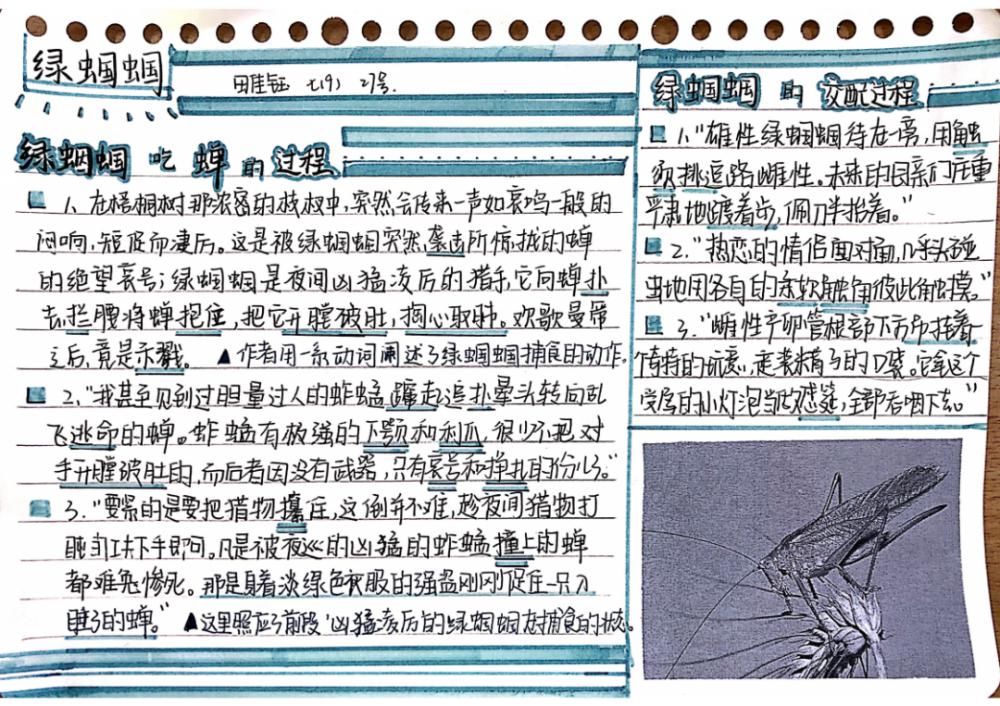 绿蝈蝈
七(9) 27号.
绿蝈蝈吃蝉的过程
1、在梧桐树那浓密的枝杈中,突然会传来一声如哀鸣一般的
闷响,短促而凄厉。这是被绿蝈蝈突然袭击所惊扰的蝉
的绝望哀号;绿蝈蝈是夜间凶猛凌厉的猎手,它向蝉扑
去,拦腰将蝉抱住,把它开膛破肚,掏心取肺。欢歌曼舞
之后,竟是杀戮。▲作者用一系动词阐述了绿蝈蝈捕食的动作。
2、"我甚至见到过胆量过人的蚱蜢蹿走追扑晕头转向乱
飞逃命的蝉。蚱蜢有极强的下颚和利爪,很少不把对
手开膛破肚的,而后者因没有武器,只有哀号和挣扎的份儿了。"
3、"要紧的是要把猎物攥住,这倒并不难,趁夜间猎物打
盹时下手即可。凡是被夜巡的凶猛的蚱蜢撞上的蝉
都难免惨死。那是身着淡绿色衣服的强盗刚刚促住一只入
睡了的蝉。"▲这里照应了前段"凶猛凌厉的绿蝈蝈在捕食的状态。
绿蝈蝈的交配过程
1、"雄性绿蝈蝈待在一旁,用触
须挑逗路雌性。未来的母亲们庄重
严肃地踱着步,佩刀半抬着。"
2、"热恋的情侣面对面,几乎头碰
头地用各自的柔软触角彼此触摸。"
3、"雌性产卵管根部下方吊挂着
个奇特的玩意,是装精子的口袋。它拿这个
的小灯泡当,全部吞咽下去。"